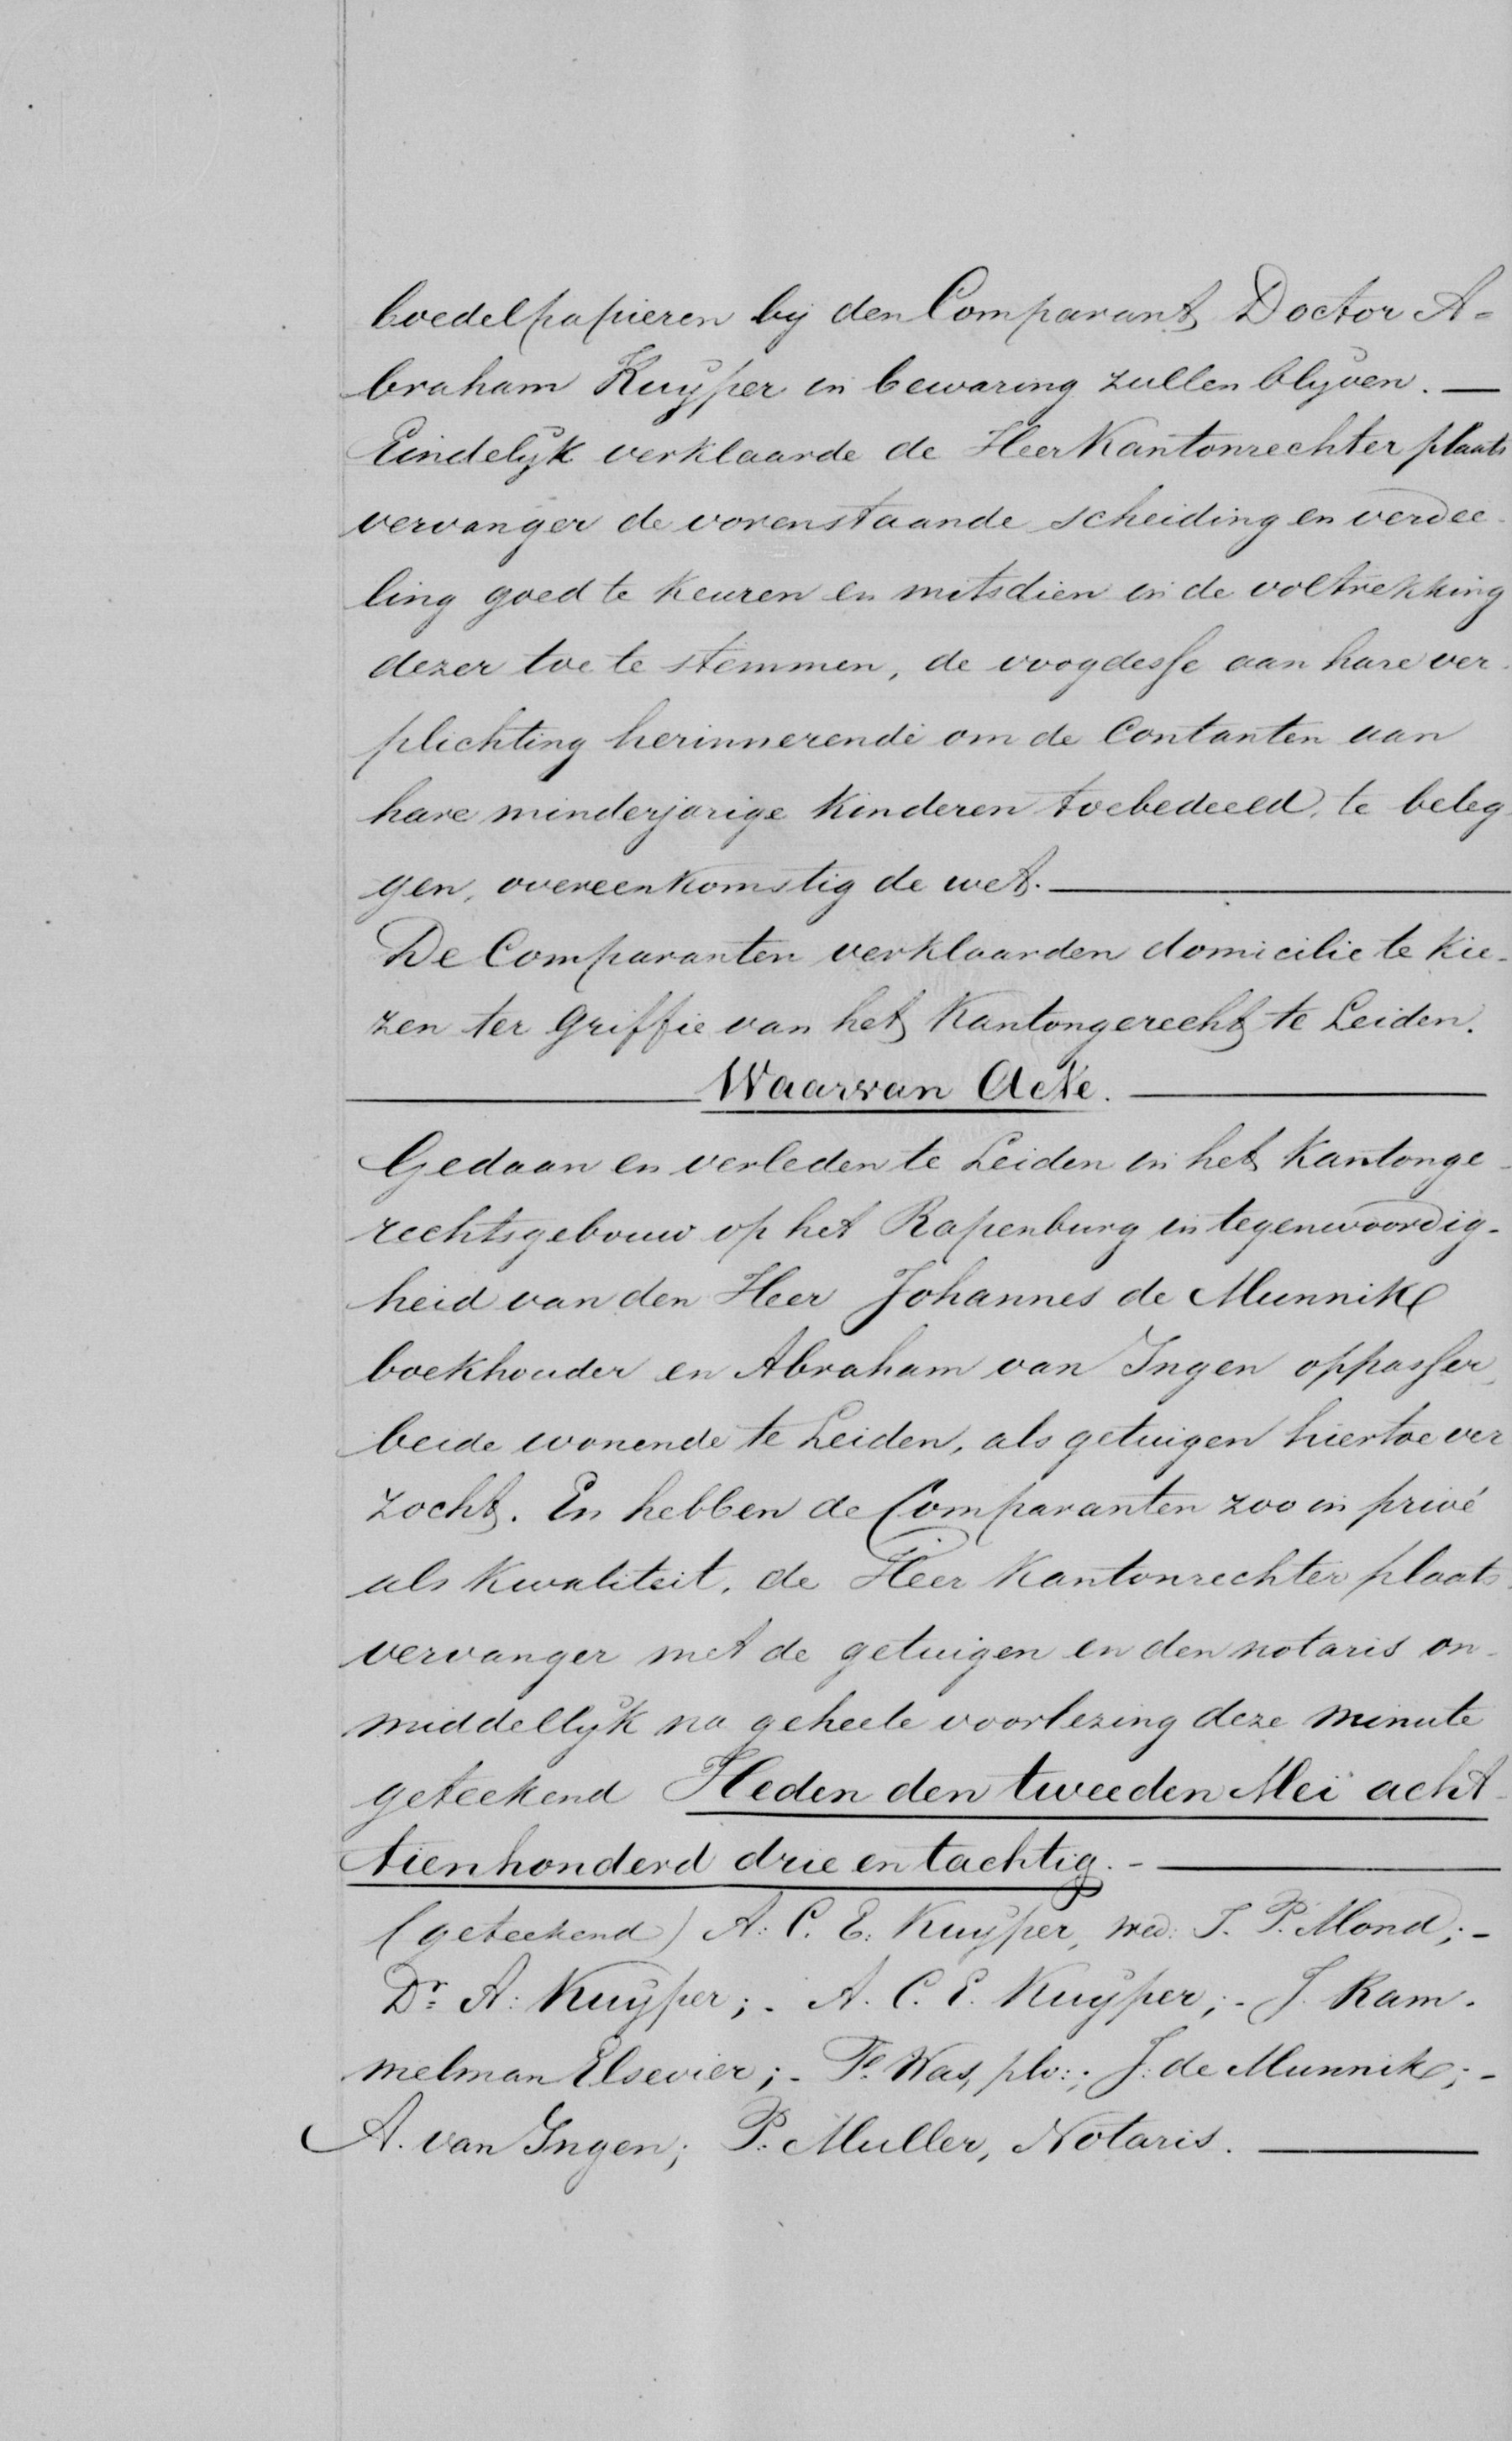 boedelpapieren bij den Comparant Doctor A=
braham Kuijper in bewaring zullen blijven. —
Eindelijk verklaarde de Heer Kantonrechter plaats
vervanger de vorenstaande scheiding en verdee-
ling goed te keuren en mitsdien in de voltrekking
dezer toe te stemmen, de voogdesse aan hare ver-
plichting herinnerende om de Contanten aan
hare minderjarige Kinderen toebedeeld, te beleg
gen, overeenkomstig de wet. —
De Comparanten verklaarden domicilie te kie-
zen ter Griffie van het Kantongerecht te Leiden.
— Waarvan Acte. —
Gedaan en verleden te Leiden in het Kantonge-
rechtsgebouw op het Rapenburg in tegenwoordig-
heid van den Heer Johannes de Munnik
boekhouder en Abraham van Ingen oppasser,
beide wonende te Leiden, als getuigen hiertoe ver
zocht. En hebben de Comparanten zoo in privé
als Kwaliteit, de Heer Kantonrechter plaats-
vervanger met de getuigen en den notaris on-
middellijk na geheele voorlezing deze minute
geteekend Heden den tweeden Mei acht-
tienhonderd drie en tachtig. —
(geteekend) A: C. E: Kuijper, wed: J. P. Mond; -
Dr. A: Kuijper; - A. C. E. Kuijper; - J. Ram-
melman Elsevier; - Fs. Was, plv:; J: de Munnik; -
A. van Ingen; P. Muller, Notaris. —